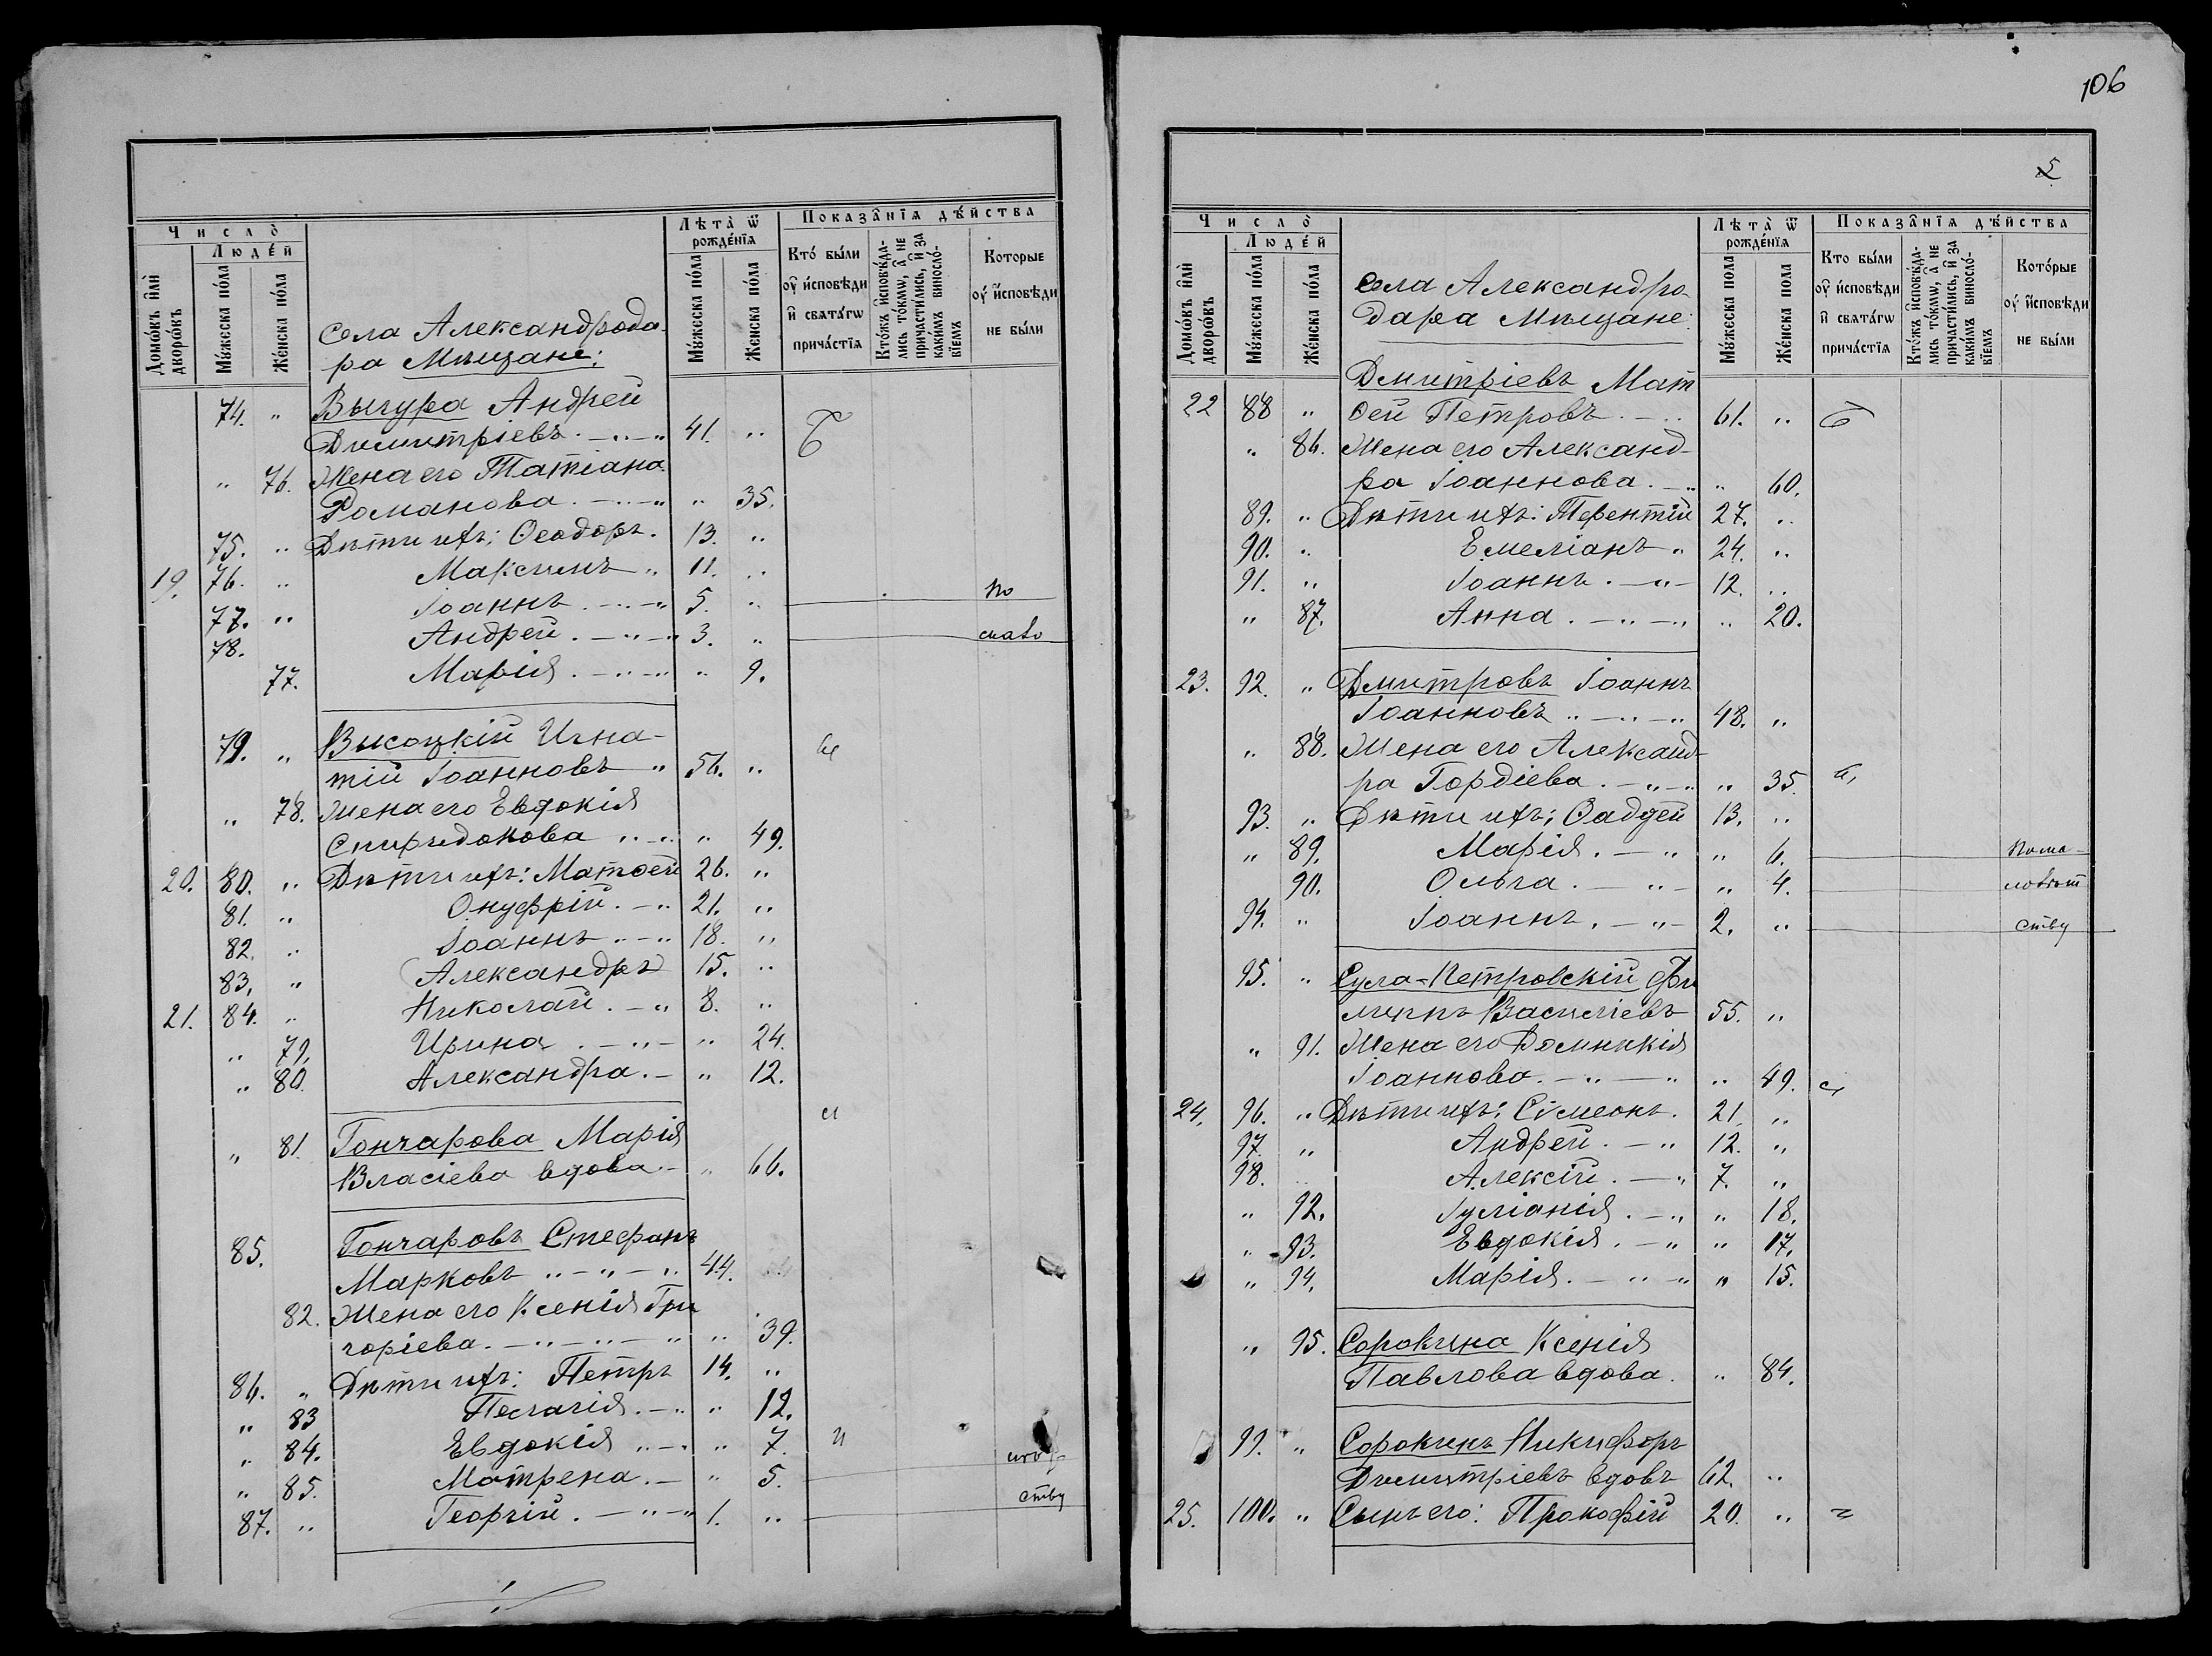 Число̀
Домо́въ и҆лѝ дворо́въ
Люде́й
Мꙋ́жеска по́ла
Же́нска по́ла
Села Александрода-
ра Мѣщане:
Лѣта̀ ѿ рожде́нїѧ
Мꙋ́жеска по́ла
Же́нска по́ла
Показа̑нїѧ дѣ́йства
Кто́ бы́ли ᲂу҆ и҆сповѣ́ди и҆ свѧта́гѡ прича́стїѧ
Кто́жъ и҆сповѣ́да-лись то́кмѡ, а҆ не причасти́лись, и҆ за каки́мъ виносло́-вїемъ
Которые ᲂу҆ и҆сповѣди не бы́ли
74. " Вычура Андрей
Димитріевъ. 41. "
" 76. Жена его Татіана
Романова. " 35.
75. " Дѣти ихъ: Ѳеодоръ. 13. "
19. 76. " Максимъ " 11. "
77. " Іоаннъ. 5. " по
78. Андрей. 3. " мало
77. Марія. " 9.
79. " Высоцкій Игна-
тій Іоанновъ " 56. "
" 78. Жена его Евдокія
Спиридонова " 49.
20. 80. " Дѣти ихъ: Матѳей 26. "
81. " Онуфрій. 21. "
82. " Іоаннъ 18. "
83. " Александръ 15. "
21. 84. " Николай. 8. "
" 79. Ирина " 24.
" 80. Александра. " 12.
" 81. Гончарова Марія
Власіева вдова. " 66.
85. Гончаровъ Стефанъ
Марковъ 44.
82. Жена его Ксенія Гри
горіева. " 39.
86. " Дѣти ихъ: Петръ 14. "
" 83 Пелагія. " 12.
" 84. Евдокія " 7.
" 85. Матрена. " 5.
87. " Георгій. 1. " ству
106
5
Число̀
Домо́въ и҆лѝ дворо́въ
Люде́й
Мꙋ́жеска по́ла
Же́нска по́ла
Села Александро-
дара Мѣщане:
Лѣта̀ ѿ рожде́нїѧ
Мꙋ́жеска пола
Же́нска пола
Показа̑нїѧ дѣ́йства
Кто бы́ли ᲂу҆ и҆сповѣ́ди и҆ свѧта́гѡ прича́стїѧ
Кто́жъ и҆сповѣ́да-лись то́кмѡ, а҆ не причасти́лись, и҆ за каки́мъ виносло́-вїемъ
Кото́рые ᲂу҆ и҆сповѣди не бы́ли
Дмитріевъ Мат
22 88 " ѳей Петровъ. 61. "
" 86. Жена его Александ-
ра Іоаннова. " 60.
89. " Дѣти ихъ: Терентій 27. "
90. " Емеліанъ " 24. "
91. " Іоаннъ. 12. "
" 87. Анна. " 20.
23. 92. " Дмитровъ Іоаннъ
Іоанновъ 48. "
" 88. Жена его Александ-
ра Гордіева. " 35.
93. " Дѣти ихъ: Ѳаддей 13. "
" 89. Марія. " 6. по ма-
90. Ольга. " 4. лолѣт
94. " Іоаннъ. 2. " ству
95. " Сула-Петровскій Фи
липпъ Василіевъ 55. "
" 91. Жена его Домникія
Іоаннова. " 49.
24. 96. " Дѣти ихъ: Сімеонъ. 21. "
97. " Андрей. 12. "
98. Алексій. 7. "
" 92. Іуліанія. " 18.
" 93. Евдокія. " 17.
" 94. Марія. " 15.
" 95. Сорокина Ксенія
Павлова вдова. " 84.
99. " Сорокинъ Никифоръ
Димитріевъ вдовъ 62. "
25. 100. " Сынъ его: Прокофій 20. "